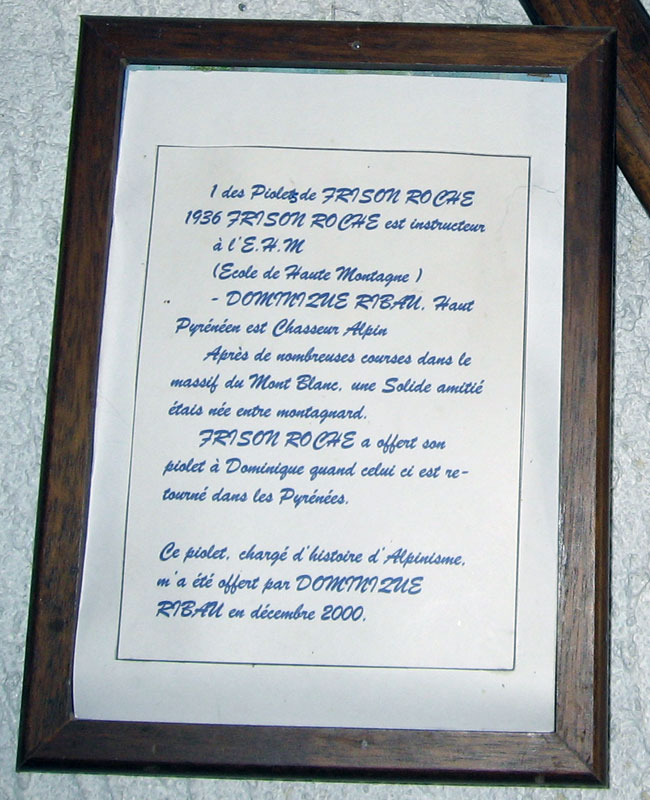 1 des Piolets de FRISON ROCHE
1936 FRISON ROCHE est instructeur
à l'E.H.M
(Ecole de Haute Montagne )
- DOMINIQUE RIBAU, Haut
Pyrénéen est Chasseur Alpin
Après de nombreuses courses dans le
massif du Mont Blanc, une Solide amitié
étais née entre montagnard.
FRISON ROCHE a offert son
piolet à Dominique quand celui ci est re-
tourné dans les Pyrénées.
Ce piolet, chargé d'histoire d'Alpinisme,
m'a été offert par DOMINIQUE
RIBAU en décembre 2000.